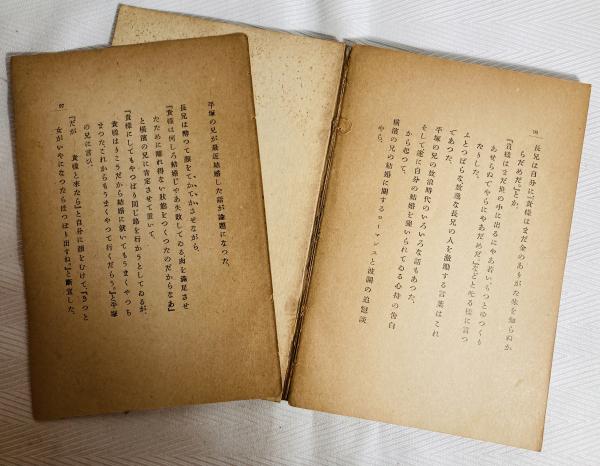 長兄は自分に『貴様はまだ金のありがた味を知らぬか
らだめだ。』とか、
『貴様はまだ世の中に出るにやあ若い、もつとゆつくり
あせらぬでやらにやあだめだ。』などと光る様に言つ
たりした。
ムとつぱらな放逸な長兄の人を激励する言葉はこれ
であつた。
平塚の兄の放浪時代のいろいろな話もあつた、
そして遂に自分の結婚を強いられてゐる心持の告白
から起つて、
横濱の兄の結婚に関するローマンスと波瀾の追憶談
やら、
平塚の兄が最近結婚した話が論題になつた。
長兄は酔つて顔をてかてかさせながら、
『貴様は何しろ結婚じやあ失敗してゐる肉を満足させ
たために離れ得ない状態をつくつたのだからなあ』
と横濱の兄に肯定させて置いて、
『貴様にしてもやつぱり同じ路を行かうとしてゐるが、
貴様はりこうだから結婚に就いてもうまくやつち
まつた、これからもうまくやつて行くだらう。』と平塚
の兄に言ひ、
『だが 貴様と来たら』と自分に顔をむけて、『きつと
女がいやになつたらほつぽり出すね。』と断言した。
97